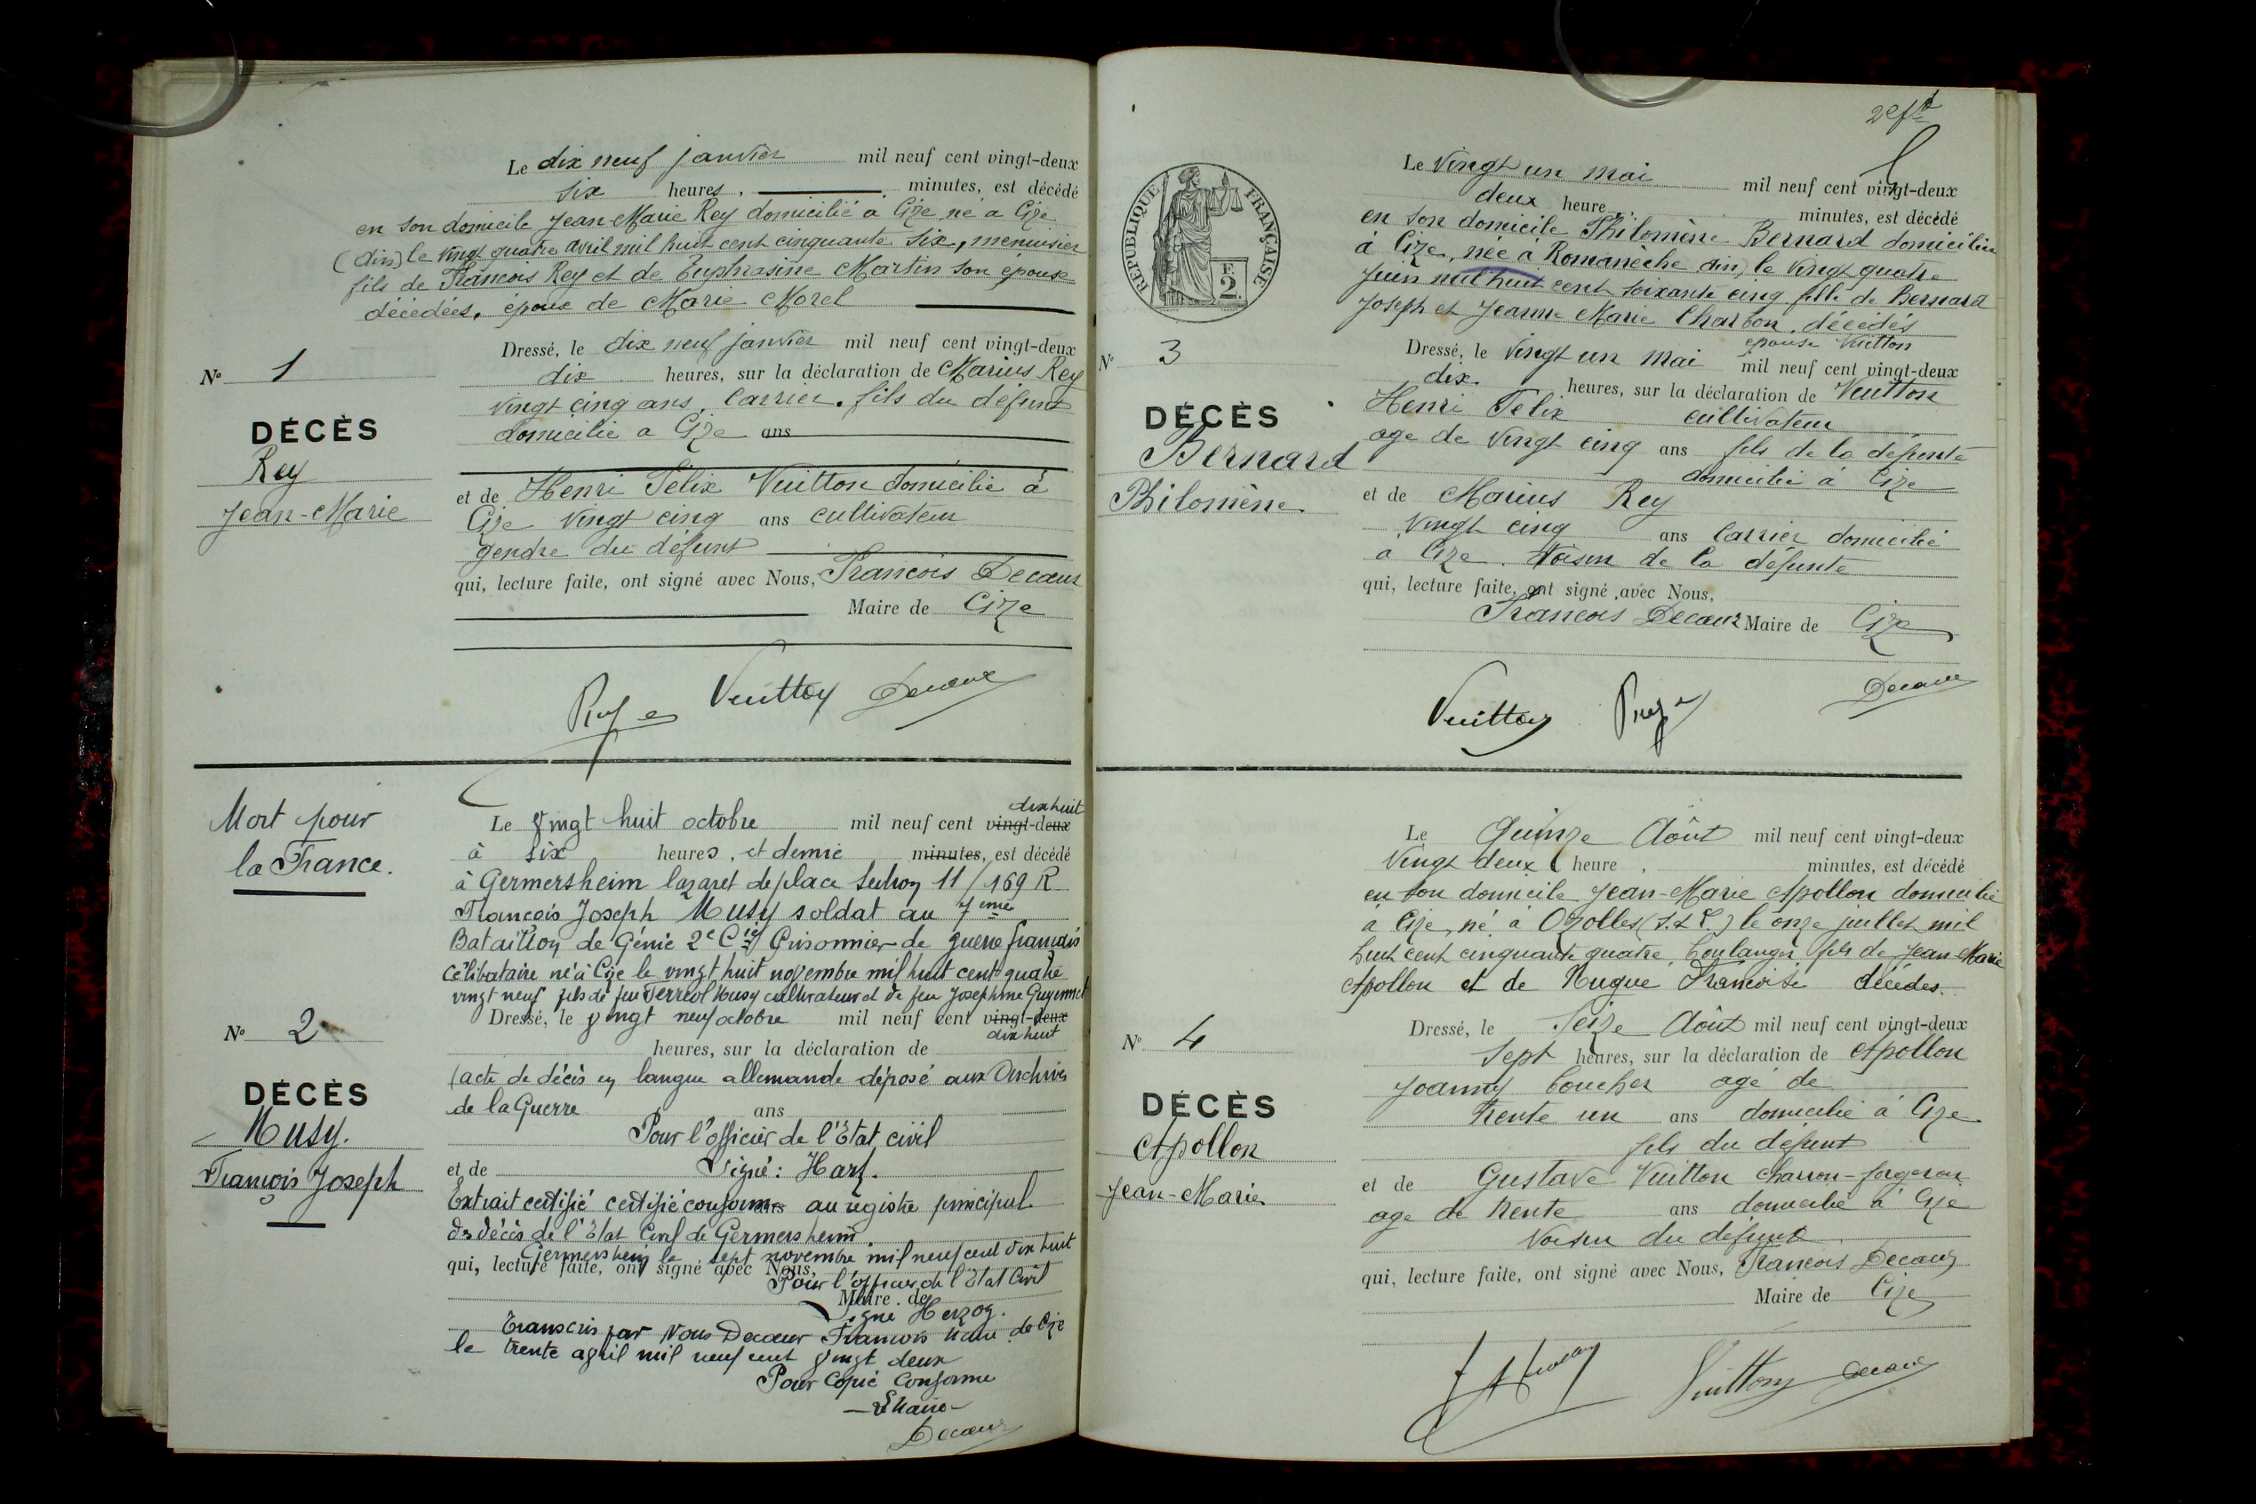 Le dix neuf janvier mil neuf cent vingt-deux
six heures, minutes, est décédé
en son domicile Jean-Marie Rey domicilié à Cize né a Cize
(Ain) le vingt quatre avril mil huit cent cinquante six, menuisier
fils de François Rey et de Euphrasine Martin son épouse
décédées, époux de Marie Morel
Dressé, le dix neuf janvier mil neuf cent vingt-deux
N° 1
dix heures, sur la déclaration de Marius Rey
vingt cinq ans, carrier, fils du défunt
DÉCÈS
domicilié a Cize ans
Rey
Jean-Marie
et de Henri Félix Vuitton domicilié à
Cize vingt cinq ans cultivateur
gendre du défunt
qui, lecture faite, ont signé avec Nous, François Decœur
Maire de Cize
Rey Vuitton Decœur
Mort pour
la France.
dix huit
Le vingt huit octobre mil neuf cent vingt-deux
à six heures, et demie minutes, est décédé
à Germersheim lazaret de place 11/169 R
François Joseph Musy soldat au 7ème
Bataillon de Génie 2e Cie Prisonnier de guerre français
célibataire né à Cize le vingt huit novembre mil huit cent quatre
vingt neuf fils de feu Ferréol Musy cultivateur et de feu Josephine Guyennet
Dressé, le vingt neuf octobre mil neuf cent vingt-deux
dix huit
N° 2
heures, sur la déclaration de
(acte de décès en langue allemande déposé aux Archives
DÉCÈS
de la Guerre ans
Musy.
François Joseph
Pour l'officier de l'Etat civil
et de Signé: Harz.
Extrait certifié certifié conforme au registre principal
des décès de l'Etat Civil de Germersheim.
Germersheim le sept novembre mil neuf cent dix huit
qui, lecture faite, ont signé avec Nous,
Pour l'officier de l'Etat Civil
Maire de
Signé Herzog.
Transcris par Nous Decœur François Maire de Cize
le trente avril mil neuf cent vingt deux
Pour copie conforme
Le Maire
Decœur
Le vingt un mai mil neuf cent vingt-deux
deux heure minutes, est décédé
en son domicile Philomène Bernard domiciliée
à Cize, née à Romanèche Ain, le vingt quatre
juin mil huit cent soixante cinq fille de Bernard
Joseph et Jeanne Marie Charbon, décédés
épouse Vuitton
RÉPUBLIQUE FRANÇAISE
F
2
Dressé, le vingt un mai mil neuf cent vingt-deux
N° 3
dix. heures, sur la déclaration de Vuitton
Henri Felix cultivateur
DÉCÈS
age de vingt cinq ans fils de la défunte
Bernard
Philomène
domicilié à Cize
et de Marius Rey
vingt cinq ans carrier domicilié
a Cize. voisin de la défunte
qui, lecture faite, ont signé avec Nous,
Francois Decœur Maire de Cize
Vuitton Rey Decœur
Le Quinze Août mil neuf cent vingt-deux
vingt deux heure, minutes, est décédé
en son domicile Jean-Marie Apollon domicilié
à Cize, né à Ozolles (S.&L.) le onze juillet mil
huit cent cinquante quatre, boulanger fils de Jean-Marie
Apollon et de Nugue Francoise décédés.
Dressé, le Seize Août mil neuf cent vingt-deux
N° 4
Sept heures, sur la déclaration de Apollon
Joanny boucher agé de
DÉCÈS
trente un ans domicilié à Cize
Apollon
Jean-Marie
fils du défunt
et de Gustave Vuitton charron-forgeron
age de trente ans domicilié à Cize
voisin du défunt
qui, lecture faite, ont signé avec Nous, Francois Decœur
Maire de Cize
Vuitton Decœur